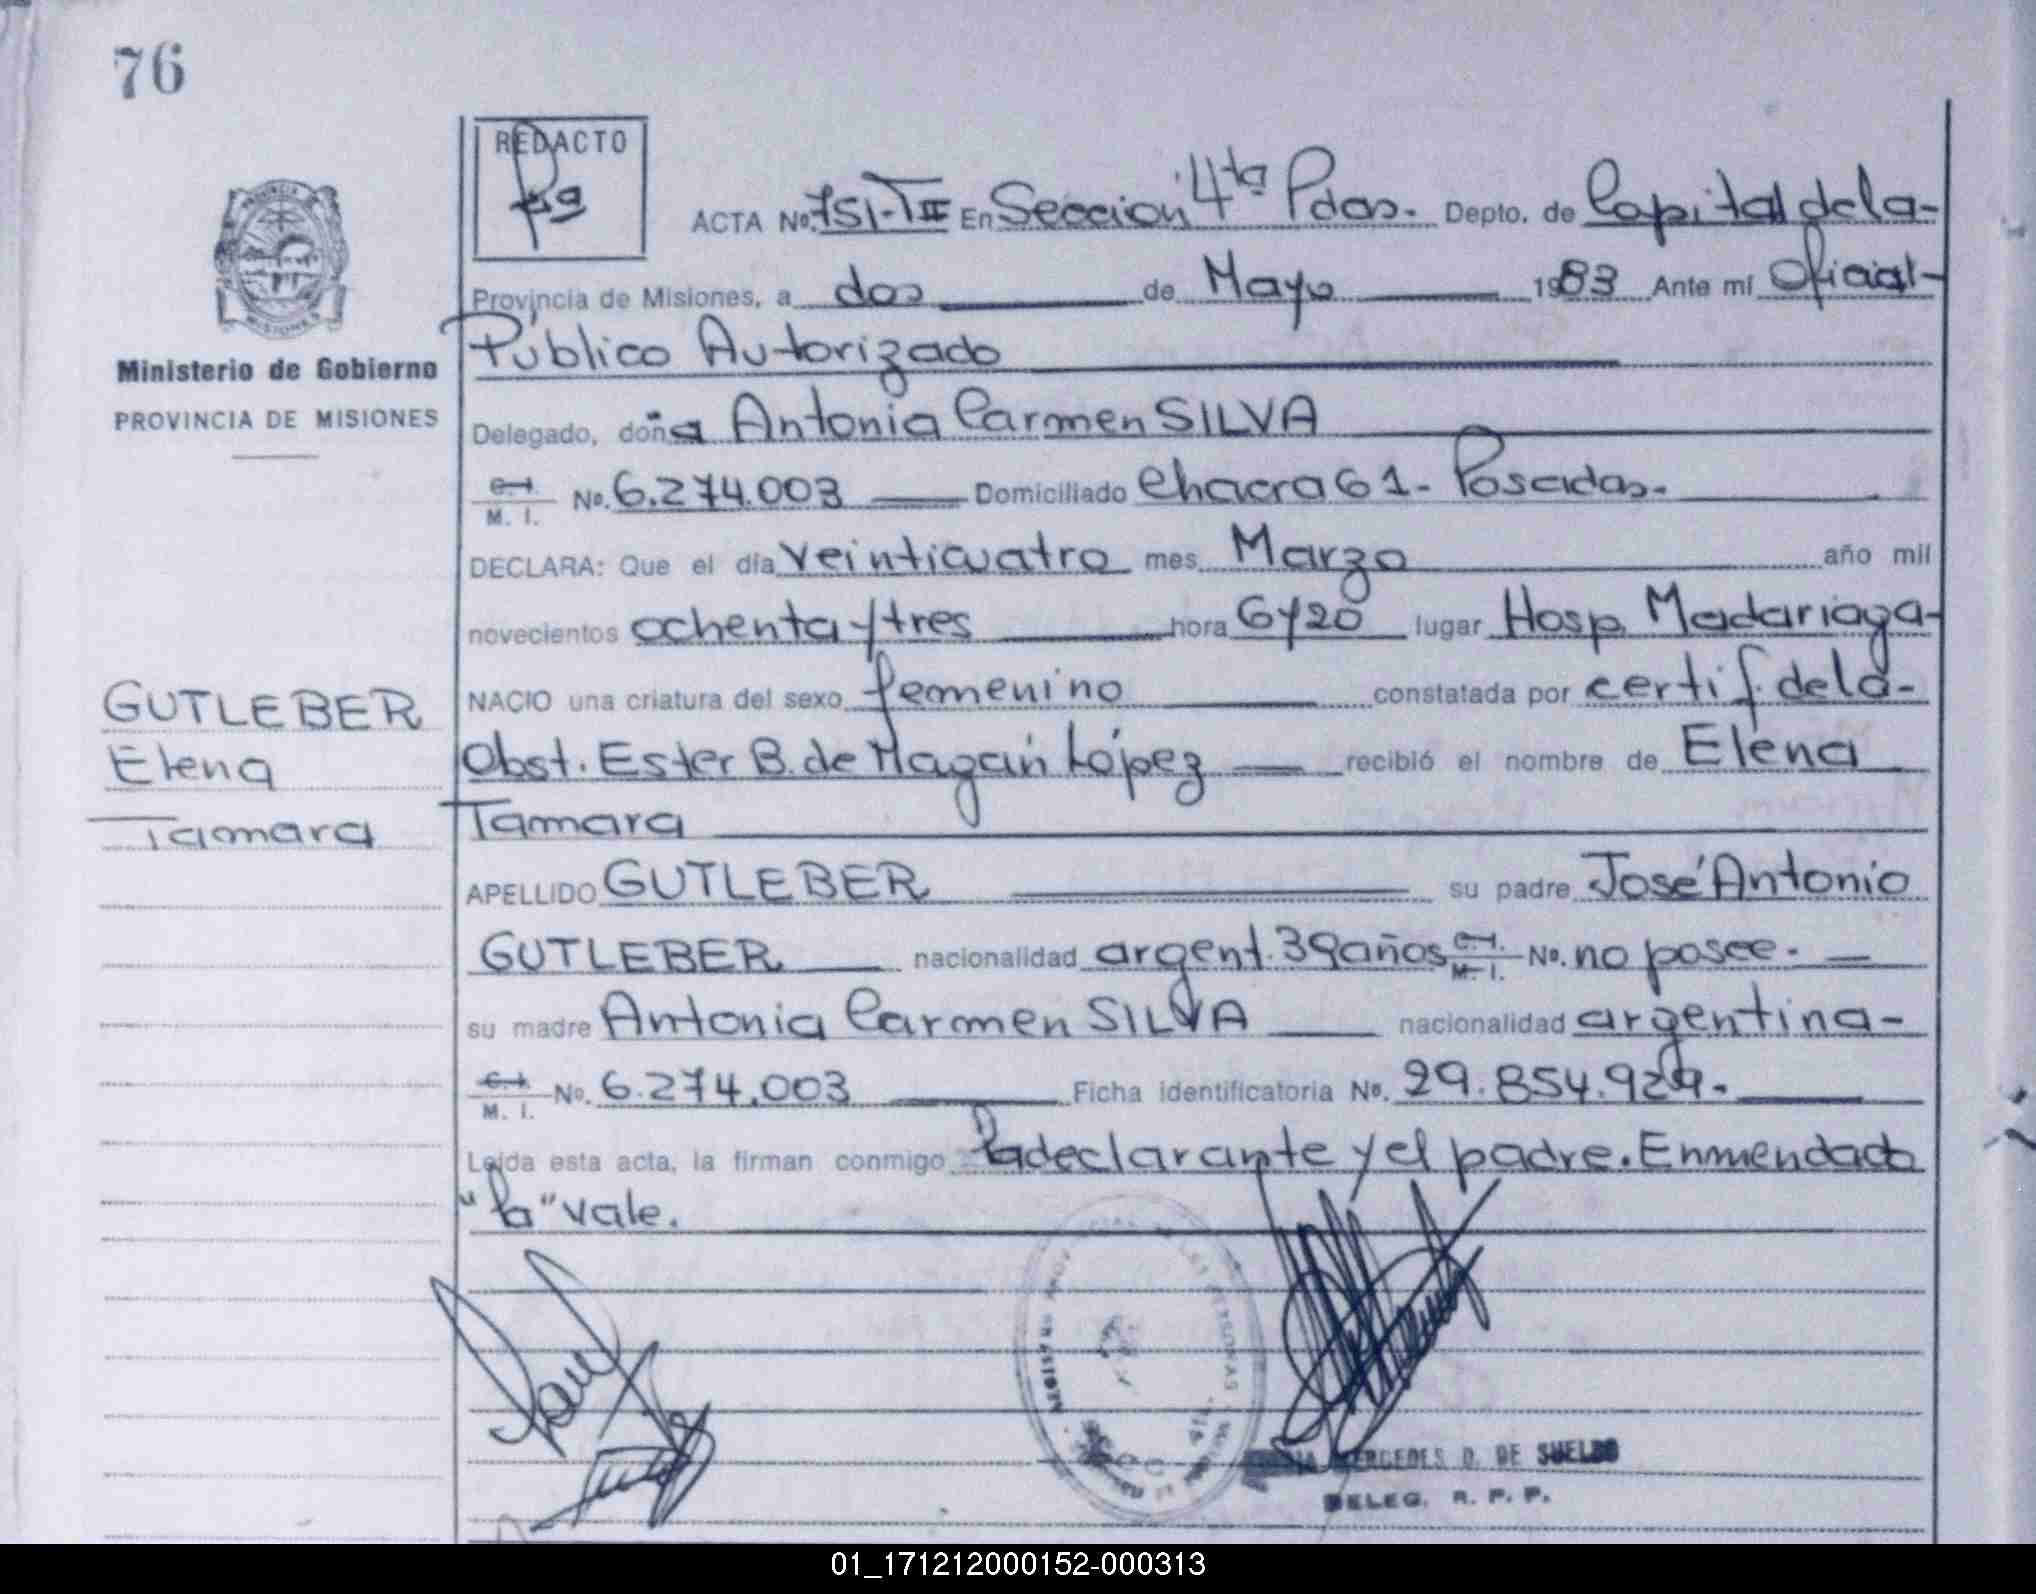 76
REDACTO
ACTA No. 751-T III En Sección 4ta Pdas. Depto. de Capital de la-
Provincia de Misiones, a dos de Mayo 1983 Ante mí Oficial-
Público Autorizado
Ministerio de Gobierno
PROVINCIA DE MISIONES
Delegado, doña Antonia Carmen SILVA
C. I. M. I. No. 6.274.003 Domiciliado Chacra 61- Posadas.
DECLARA: Que el día veinticuatro mes Marzo año mil
novecientos ochenta y tres hora 6y20 lugar Hosp. Madariaga-
NACIO una criatura del sexo femenino constatada por certif. de la-
Obst. Ester B. de Magán López recibió el nombre de Elena
Tamara
GUTLEBER
Elena
Tamara
APELLIDO GUTLEBER su padre José Antonio
GUTLEBER nacionalidad argent. 39años C. I. M. I. No. no posee.
su madre Antonia Carmen SILVA nacionalidad argentina-
C. I. M. I. No. 6.274.003 Ficha identificatoria No. 29.854.929.
Leída esta acta, la firman conmigo la declarante y el padre. Enmendado
"la" vale.
MERCEDES D. DE SUELDO
DELEG. R. P. P.
01_171212000152-000313